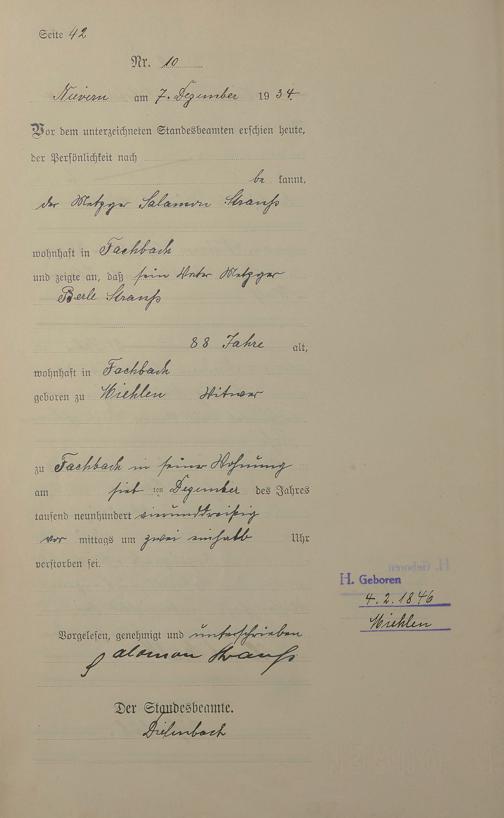 Seite 42
Nr. 10
Nievern am 7. Dezember 1934.
Vor dem unterzeichneten Standesbeamten erschien heute,
der Persönlichkeit nach
be kannt,
der Metzger Salamon Strauß
wohnhaft in Fachbach
und zeigte an, daß sein Vater Metzger
Berle Strauß
88 Jahre alt,
wohnhaft in Fachbach
geboren zu Miehlen Witwer
zu Fachbach in seiner Wohnung
am ten Dezember des Jahres
tausend neunhundert vierunddreißig
vor mittags um zwei einhalb Uhr
verstorben sei.
H. Geboren
4.2.1846
Miehlen
Vorgelesen, genehmigt und unterschrieben
Salomon Strauß
Der Standesbeamte.